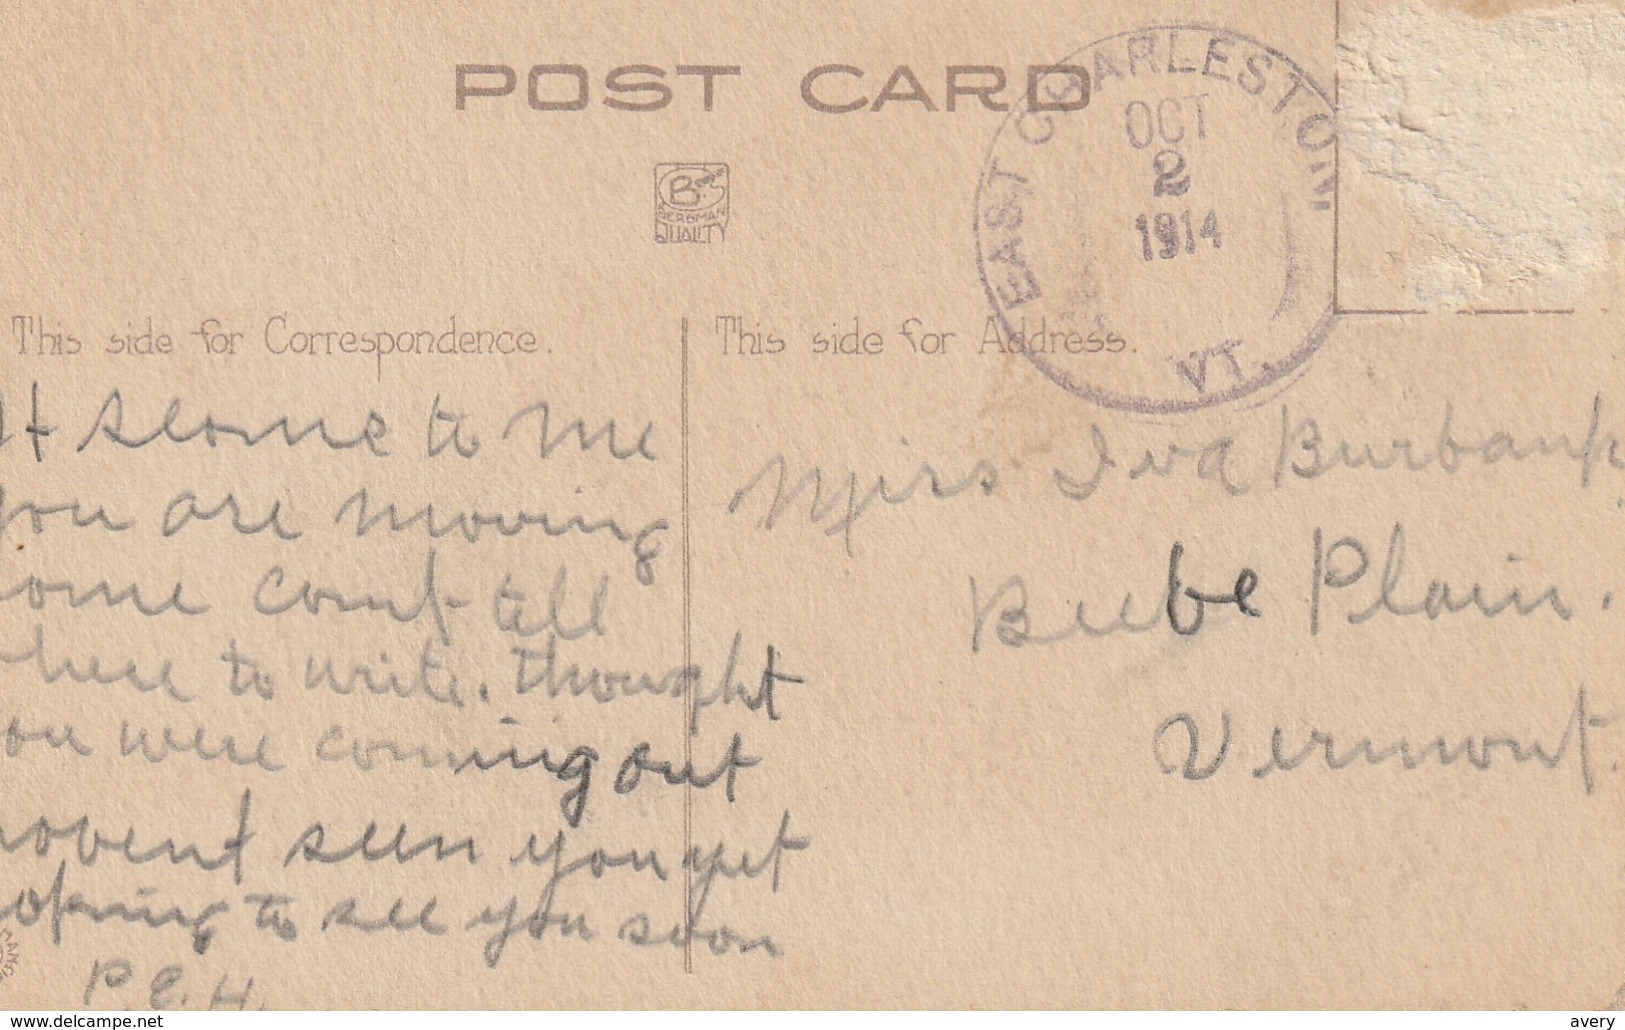 POST CARD
EAST CHARLESTON
OCT
2
1914
VT.
B
BERGMAN
QUALITY
This side for Correspondence.
This side for Address.
It seome to me
you are moving
some count tell
where to write. thought
you were coming out
hovent seen you yet
hoping to see you soon
P. E. H.
Miss Iva Burbank
Beebe Plain.
Vermont.
©www.delcampe.net
avery